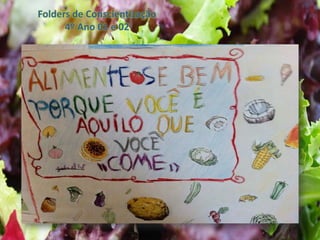 Folders de Conscientização
4º Ano 01 e 02
ALIMENTE-SE BEM
PORQUE VOCÊ É
AQUILO QUE
VOCÊ
"COME"